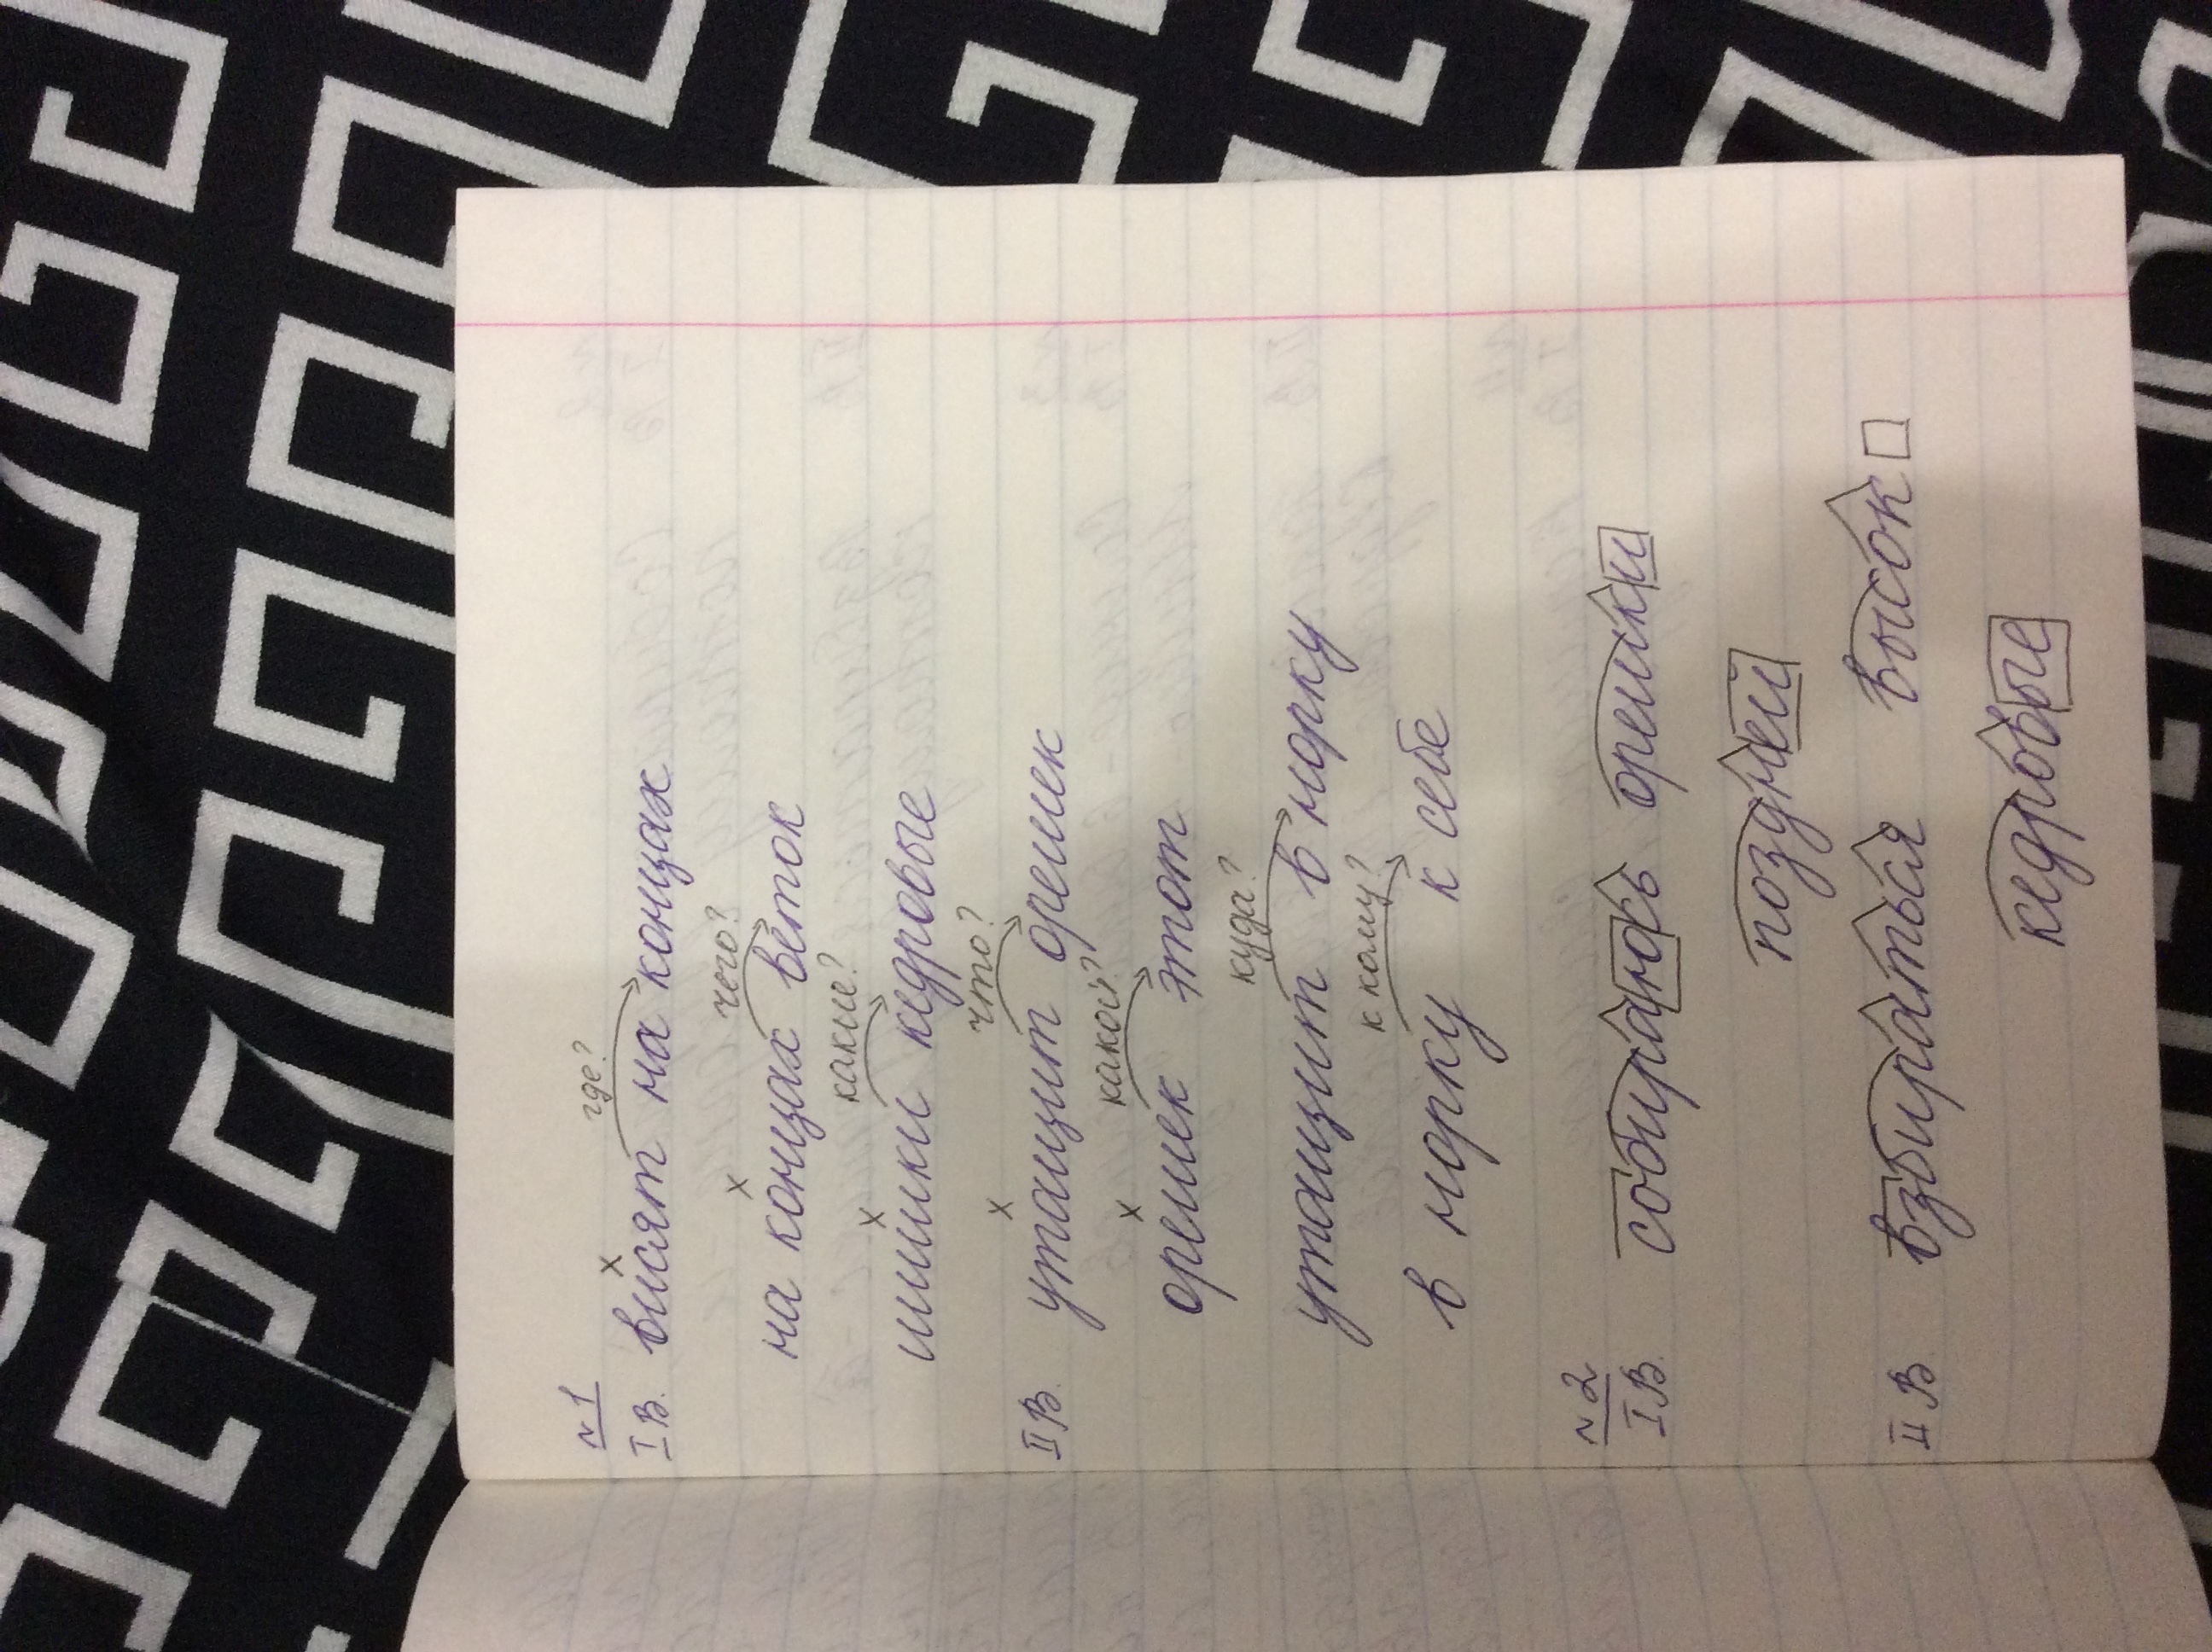 №1
где?
I В. висят на концах
чего?
на концах веток
какие?
шишки кедровые
что?
II В. утащит орешек
какой?
орешек этот
куда?
утащит в норку
к кому?
в норку к себе
№2
I В. собираюсь орешки
поздней
II В взбираться высок
кедровые